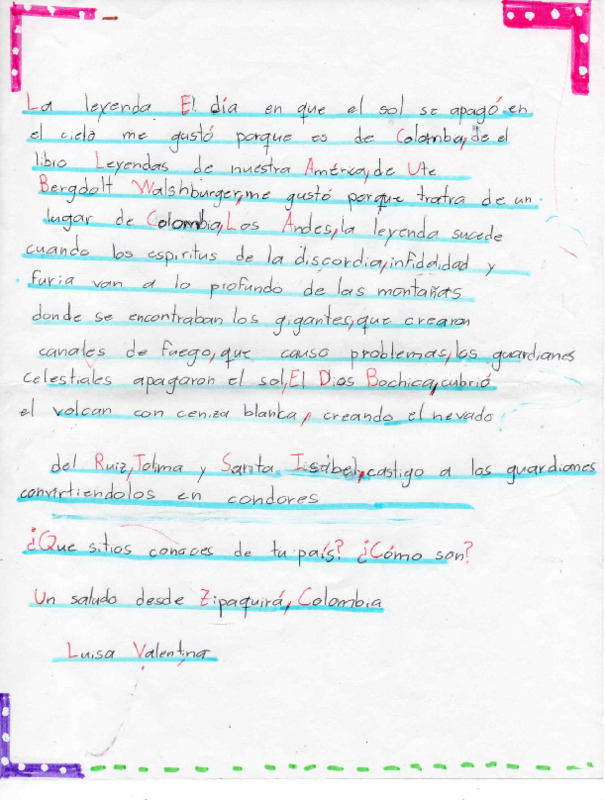 La leyenda El día en que el sol se apagó en
el cielo me gustó porque es de Colombia, de el
libro Leyendas de nuestra América, de Ute
Bergdolt Walshburger, me gustó porque tratra de un
lugar de Colombia, Los Andes, la leyenda sucede
cuando los espiritus de la discordia, infidelidad y
furia van a lo profundo de las montañas
donde se encontraban los gigantes, que crearon
canales de fuego, que causo problemas, los guardianes
celestiales apagaron el sol, El Dios Bochica, cubrió
el volcan con ceniza blanka, creando el nevado
del Ruiz, Tolima y Santa Isabel, castigo a los guardianes
convirtiendolos en condores
¿Que sitios conoces de tu país? ¿Cómo son?
Un saludo desde Zipaquirá, Colombia
Luisa Valentina